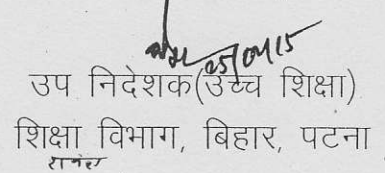 05/04/15
उप निदेशक(उच्च शिक्षा)
शिक्षा विभाग, बिहार, पटना